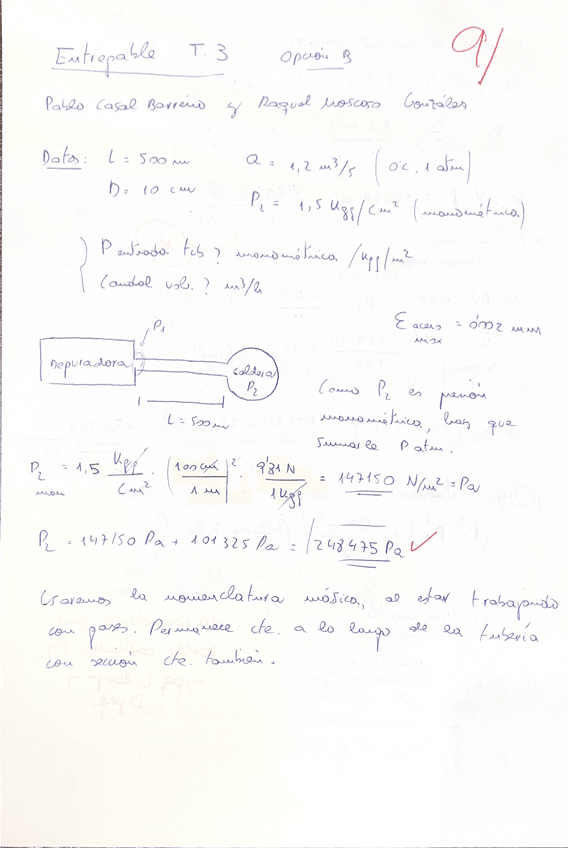 9/
Entregable T.3 Opción B
Pablo Casal Barreiro y Raquel Moscoso González
Datos: L = 500 m Q = 1,2 m³/s (0ºC, 1 atm)
D = 10 cm P₂ = 1,5 Kgf/cm² (manométrica)
P entrada tub? manométrica /Kgf/m²
Caudal vol.? m³/h
E acero max = 0'002 mm
P₁
Depuradora
Caldera P₂
L = 500 m
Como P₂ es presión
manométrica, hay que
sumarle P atm.
P₂ man = 1,5 Kgf/cm² · (100 cm/1 m)² · 9'81 N/1 Kgf = 147150 N/m² = Pa
P₂ = 147150 Pa + 101325 Pa = 248475 Pa ✓
Usaremos la nomenclatura másica, al estar trabajando
con gases. Permanece cte. a lo largo de la tubería
con sección cte. también.